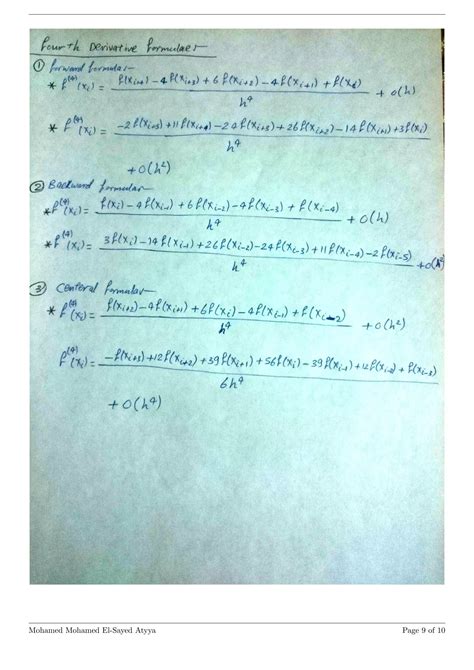 Fourth Derivative Formulae:-
① forward formula:-
* f⁽⁴⁾(xᵢ) = f(xᵢ₊₄) - 4 f(xᵢ₊₃) + 6 f(xᵢ₊₂) - 4 f(xᵢ₊₁) + f(xᵢ) / h⁴ + O(h)
* f⁽⁴⁾(xᵢ) = -2 f(xᵢ₊₅) + 11 f(xᵢ₊₄) - 24 f(xᵢ₊₃) + 26 f(xᵢ₊₂) - 14 f(xᵢ₊₁) + 3 f(xᵢ) / h⁴
+ O(h²)
② Backward formula:-
* f⁽⁴⁾(xᵢ) = f(xᵢ) - 4 f(xᵢ₋₁) + 6 f(xᵢ₋₂) - 4 f(xᵢ₋₃) + f(xᵢ₋₄) / h⁴ + O(h)
* f⁽⁴⁾(xᵢ) = 3 f(xᵢ) - 14 f(xᵢ₋₁) + 26 f(xᵢ₋₂) - 24 f(xᵢ₋₃) + 11 f(xᵢ₋₄) - 2 f(xᵢ₋₅) / h⁴ + O(h²)
③ Centeral formula:-
* f⁽⁴⁾(xᵢ) = f(xᵢ₊₂) - 4 f(xᵢ₊₁) + 6 f(xᵢ) - 4 f(xᵢ₋₁) + f(xᵢ₋₂) / h⁴ + O(h²)
f⁽⁴⁾(xᵢ) = -f(xᵢ₊₃) + 12 f(xᵢ₊₂) + 39 f(xᵢ₊₁) + 56 f(xᵢ) - 39 f(xᵢ₋₁) + 12 f(xᵢ₋₂) + f(xᵢ₋₃) / 6h⁴
+ O(h⁴)
Mohamed Mohamed El-Sayed Atyya Page 9 of 10